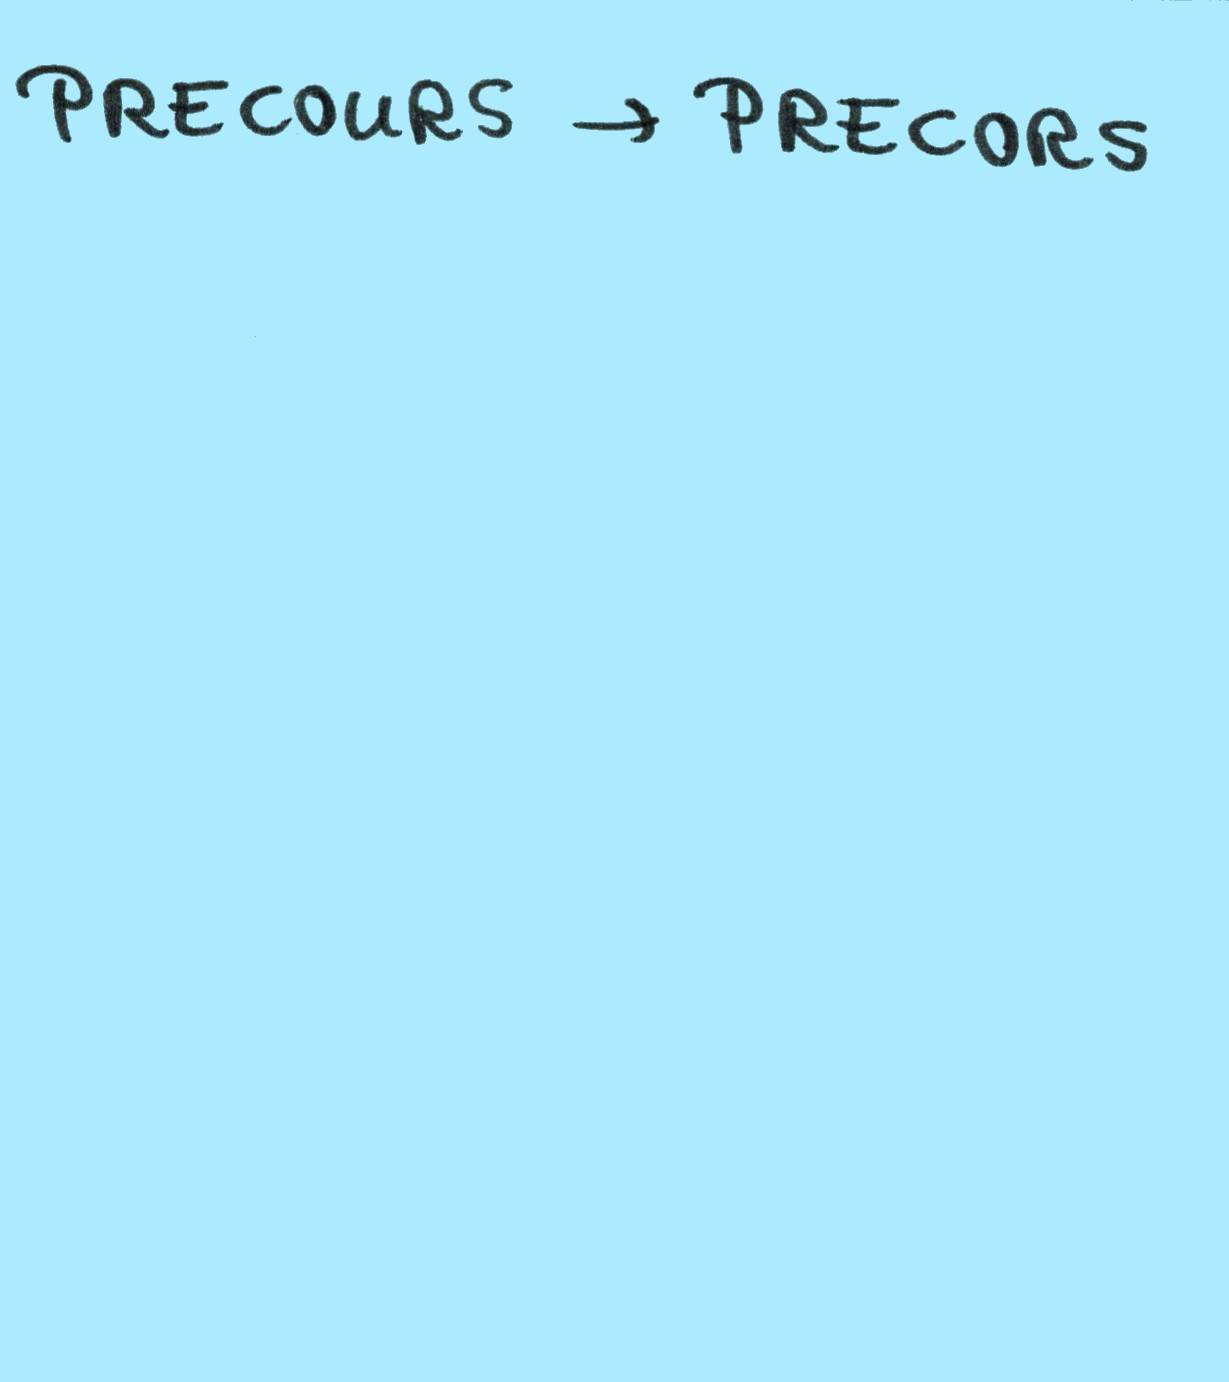 PRECOURS → PRECORS